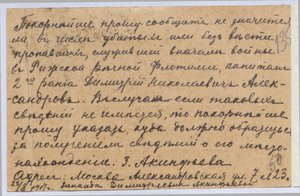 Покорнѣйше прошу сообщить не значится
ли въ числѣ убитыхъ или безъ вѣсти
пропавшихъ служившій вначалѣ войны
въ Рижской рѣчной флотиліи, капитанъ
2го ранга Димитрій Николаевичъ Алек-
сандровъ. Въ случаѣ если таковыхъ
свѣдѣній не имѣется, то покорнѣйше
прошу указать, куда должно обратиться
за полученіемъ свѣдѣній о его место-
нахожденіи. З. Акинфьева
Адресъ: Москва Александровская ул. 7 23.
Зинаида Димитріевна Акинфьева